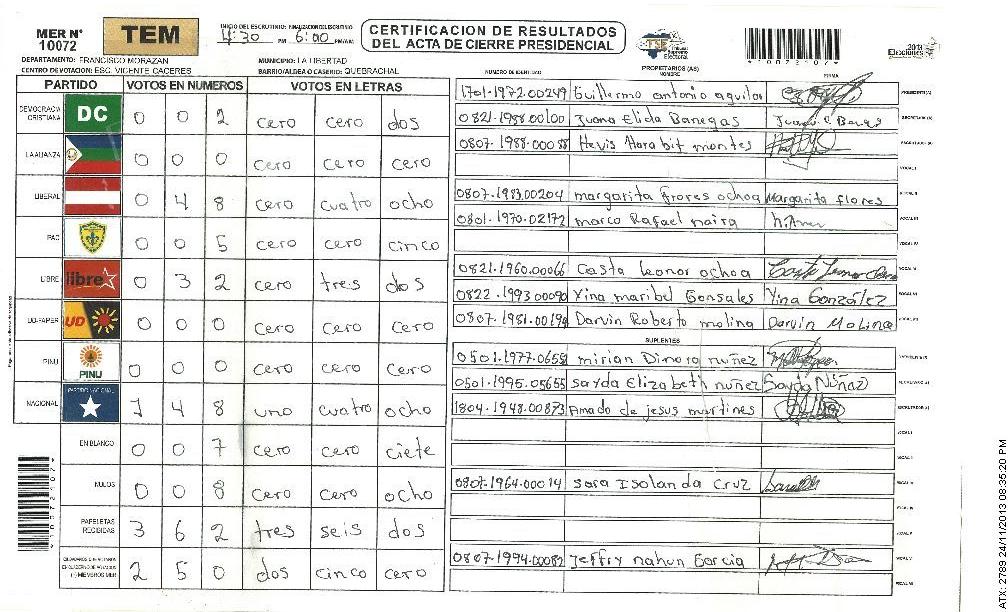 MER N° 10072
TEM
INICIO DEL ESCRUTINIO: FINALIZACION DEL ESCRUTINIO
4:30 PM 6:00 PM/AM
CERTIFICACION DE RESULTADOS
DEL ACTA DE CIERRE PRESIDENCIAL
TSE Tribunal Supremo Electoral
2013 Elecciones
DEPARTAMENTO: FRANCISCO MORAZAN MUNICIPIO: LA LIBERTAD
CENTRO DE VOTACION: ESC. VICENTE CACERES BARRIO/ALDEA O CASERIO: QUEBRACHAL
NUMERO DE IDENTIDAD PROPIETARIOS (AS) NOMBRE FIRMA
PARTIDO VOTOS EN NUMEROS VOTOS EN LETRAS
DEMOCRACIA CRISTIANA DC 0 0 2 cero cero dos
LA ALIANZA 0 0 0 cero cero cero
LIBERAL 0 4 8 cero cuatro ocho
PAC 0 0 5 cero cero cinco
LIBRE libre 0 3 2 cero tres dos
UD-FAPER UD 0 0 0 cero cero cero
PINU PINU 0 0 0 cero cero cero
NACIONAL PARTIDO NACIONAL 1 4 8 uno cuatro ocho
EN BLANCO 0 0 7 cero cero ciete
NULOS 0 0 8 cero cero ocho
PAPELETAS RECIBIDAS 3 6 2 tres seis dos
2 5 0 dos cinco cero
1701-1972-00249 Guillermo antonio aguilar PRESIDENTE(A)
0821-1988-00100 Juana Elida Banegas SECRETARIO(A)
0807-1988-00058 Hevis montes ESCRUTADOR(A)
VOCAL I
0807-1983-00204 margarita ochoa Margarita flores VOCAL II
0801-1970-02172 marco Rafael VOCAL III
VOCAL IV
0821-1960-00066 Casta leonor ochoa VOCAL V
0822-1993-00090 Yina maribel Gonsales Yina González VOCAL VI
0807-1981-00194 Darvin Roberto molina Darvin Molina
SUPLENTES
0501-1977-0655 mirian Dinora nuñez
0501-1995-05655 sayda Elizabeth nuñez Sayda Núñez
1804-1948-00873 Amado de jesus martines ESCRUTADOR(A)
VOCAL I
VOCAL II
0807-1964-00014 sara Isolanda Cruz
0807-1994-00082 Jeffry nahun Garcia
ATX: 2789 24/11/2013 08:35:20 PM